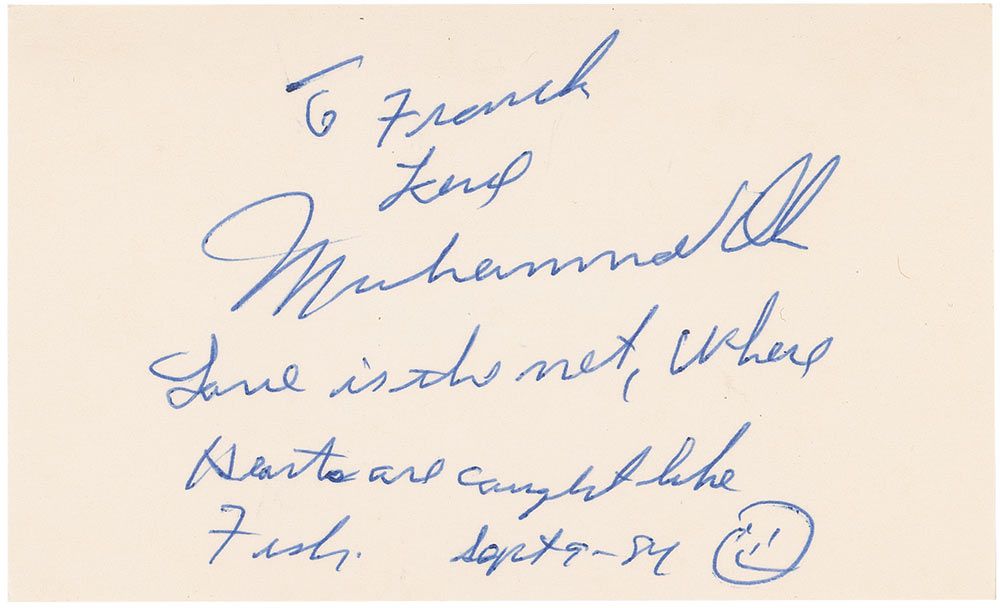 To Franck
Love
Muhammad Ali
Love is the net, Where
Hearts are caught like
Fish. Sept 9-84